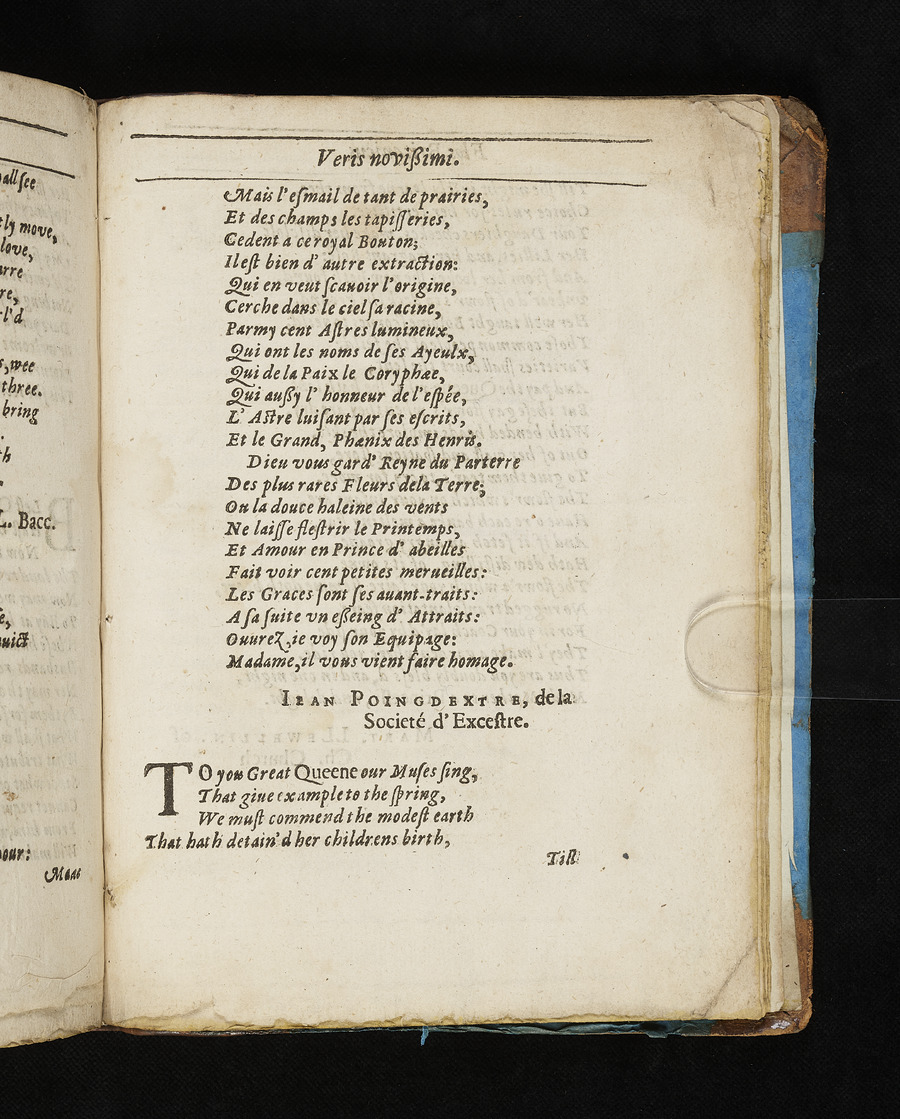 all see
tly move,
love,
rre
re,
l'd
s, wee
three.
bring
th
L. Bacc.
e,
uict
our:
Mais
Veris novißimi.
Mais l'eſmail de tant de prairies,
Et des champs les tapiſſeries,
Cedent a ce royal Bouton;
Il eſt bien d' autre extraction:
Qui en veut ſcauoir l'origine,
Cerche dans le ciel ſa racine,
Parmy cent Aſtres lumineux,
Qui ont les noms de ſes Ayeulx,
Qui de la Paix le Coryphæe,
Qui außy l' honneur de l'eſpée,
L' Aſtre luiſant par ſes eſcrits,
Et le Grand, Phœnix des Henris.
Dieu vous gard' Reyne du Parterre
Des plus rares Fleurs dela Terre;
Ou la douce haleine des vents
Ne laiſſe fleſtrir le Printemps,
Et Amour en Prince d' abeilles
Fait voir cent petites merueilles:
Les Graces ſont ſes auant-traits:
A ſa ſuite vn eßeing d' Attraits:
Ouurez, ie voy ſon Equipage:
Madame, il vous vient faire homage.
IEAN POINGDEXTRE, de la
Societé d' Exceſtre.
TO you Great Queene our Muſes ſing,
That giue example to the ſpring,
We muſt commend the modeſt earth
That hath detain'd her childrens birth,
Till